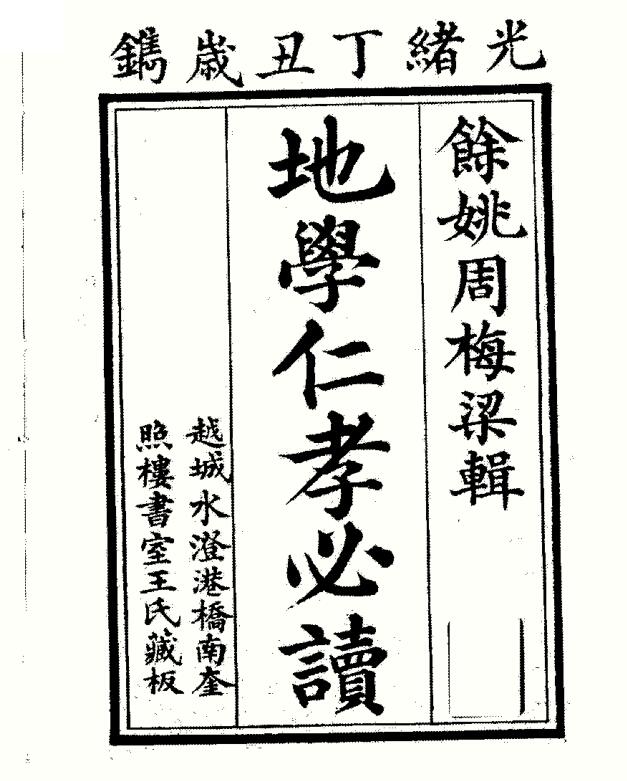 光緒丁丑歲鐫
餘姚周梅梁輯
地學仁孝必讀
越城水澄港橋南奎
照樓書室王氏藏板